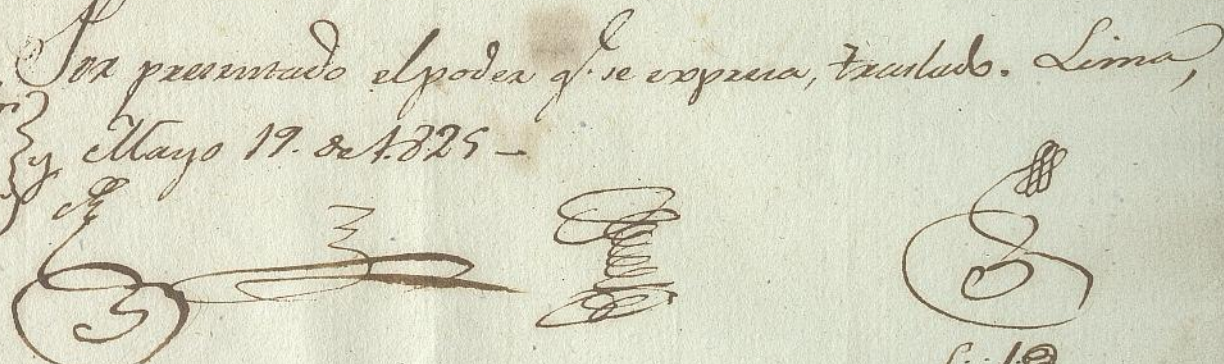 Por presentado el poder q.e se expresa, traslado. Lima,
y Mayo 19. de 1.825 –